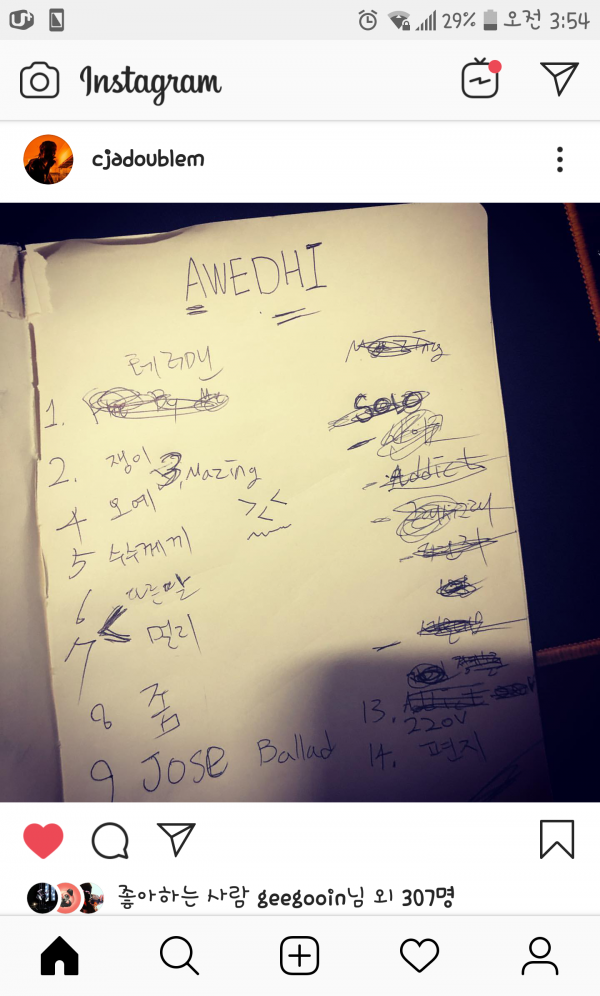 U+ 29% 오전 3:54
Instagram
cjadoublem
AWEDHI
테러맨
Mazing
1.
Solo
2. 쟁이 3. Mazing
Addict
4 오예
5 수수께끼
6 다른말
7 멀리
8 줌
13.
220V
9 JOSE Ballad
14. 편지
좋아하는 사람 geegooin님 외 307명